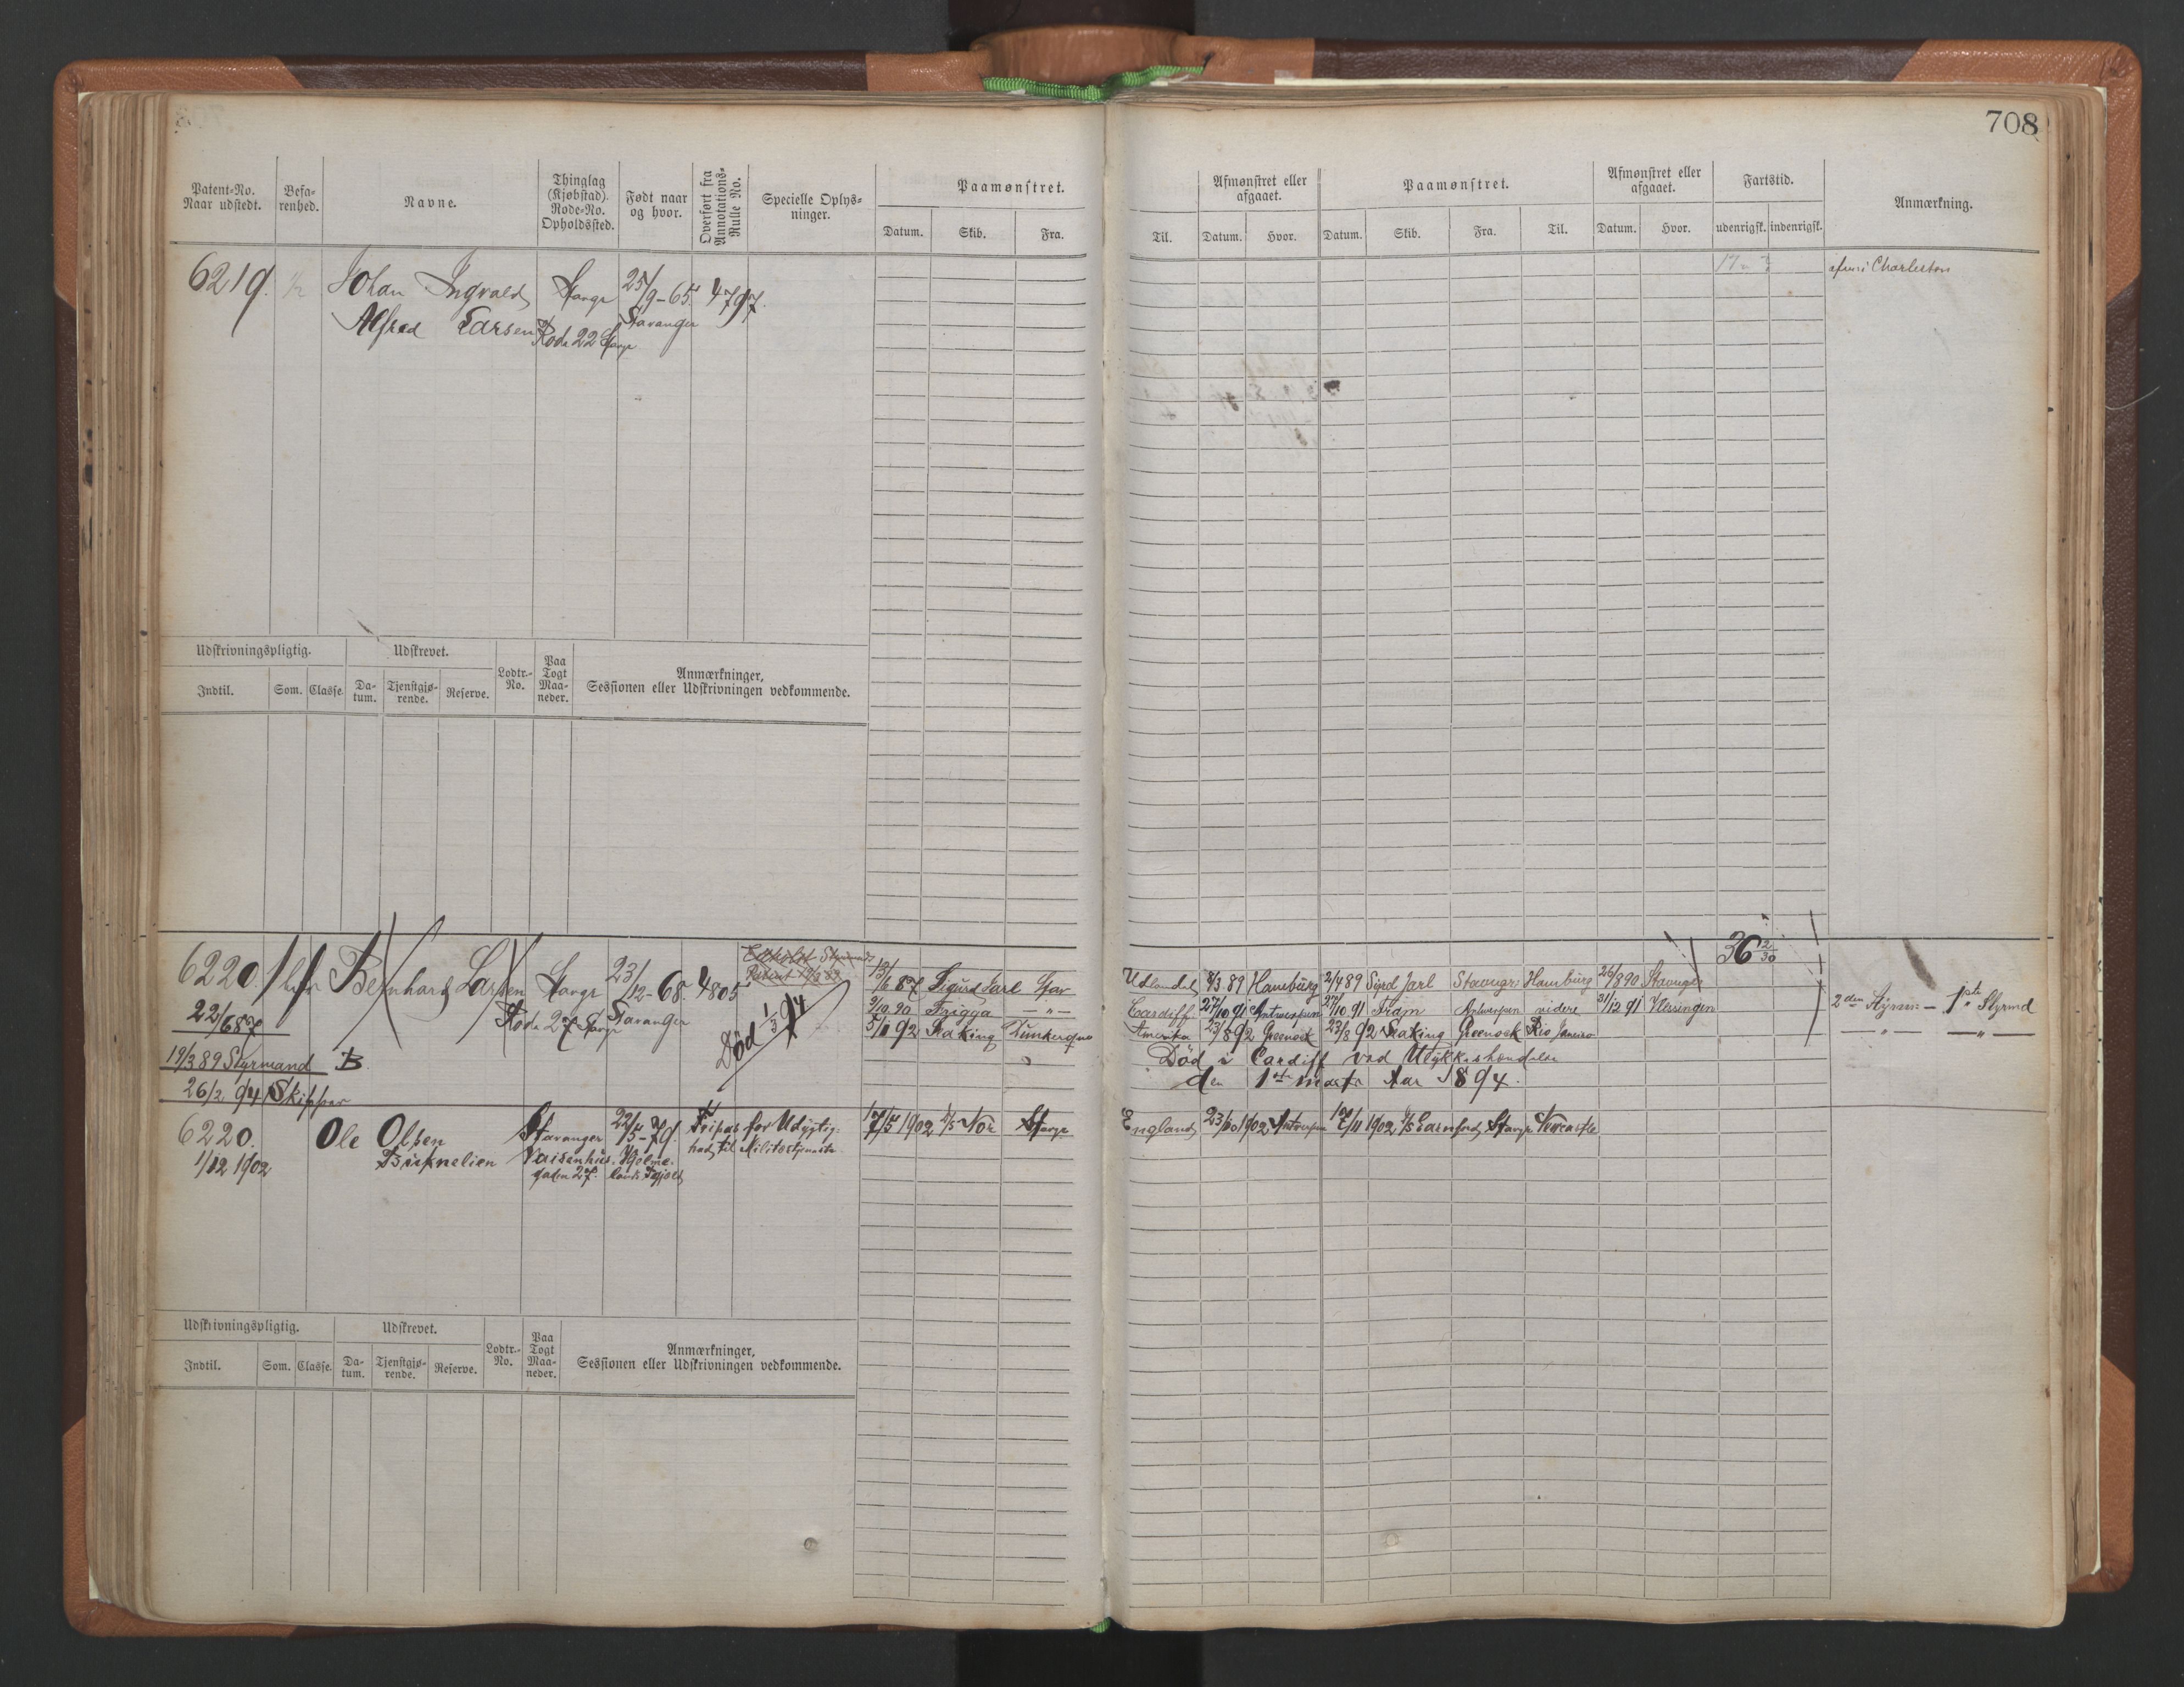 708
Patent-No. Naar udstedt. Befa-renhed. Navne. Thinglag (Kjøbstad). Rode-No. Opholdssted. Født naar og hvor. Overført fra Annotations-Rulle No. Specielle Oplys-ninger. Paamønstret.
Datum. Skib. Fra.
Afmønstret eller afgaaet. Paamønstret. Afmønstret eller afgaaet. Fartstid. Anmærkning.
Til. Datum. Hvor. Datum. Skib. Fra. Til. Datum. Hvor. udenrigsk. indenrigsk.
6219. 1/2 Johan Ingvald Stangr 25/9-65. 4797. Charleston
Alfred Larsen Rode 22 Stavgr Stavanger
Udskrivningspligtig. Udskrevet. Lodtr.-No. Paa Togt Maa-neder. Anmærkninger, Sessionen eller Udskrivningen vedkommende.
Indtil. Som. Classe. Da-tum. Tjenstgjø-rende. Reserve.
36 2/30
6220. Bernhard Larsen Stavgr 23/12-68 4805
Rode 27 Stavgr Stavanger
22/6 87
19/3 89 Styrmand B.
26/3 94 Skipper
Død 1/3 94
13/6 87 Sigurd Jarl Stav Udlandet 8/3.89 Hamburg 2/4 89 Sigrd Jarl Stavngr Hamburg 26/8 90 Stavngr
9/10.90 Frigga — " — Cardiff 27/10 91 Antwerpen 27/10 91 Antwerpen videre 31/12 91 Vlissingen 2den Styrm — 1ste Styrmd
5/1 92 Seaking Dunkerque Amerika 23/8 92 Greenock 23/8 92 Seaking Greenock Rio Janeiro — " — — " —
Død i Cardiff ved Ulykkeshendelse
den 1ste marts Aar 1894.
6220. Ole Olsen Stavanger 22/5-79. Fripas for Udygtig- 17/5 1902 D/S Nor Stavgr England 23/10 1902 Antwerpen 17/11 1902 Stavgr Newcastle
1/12 1902 Birknelien Vaisenhus- Hjelme- hed til Militærtjeneste
gaden 27. lands
Udskrivningspligtig. Udskrevet. Lodtr.-No. Paa Togt Maa-neder. Anmærkninger, Sessionen eller Udskrivningen vedkommende.
Indtil. Som. Classe. Da-tum. Tjenstgjø-rende. Reserve.